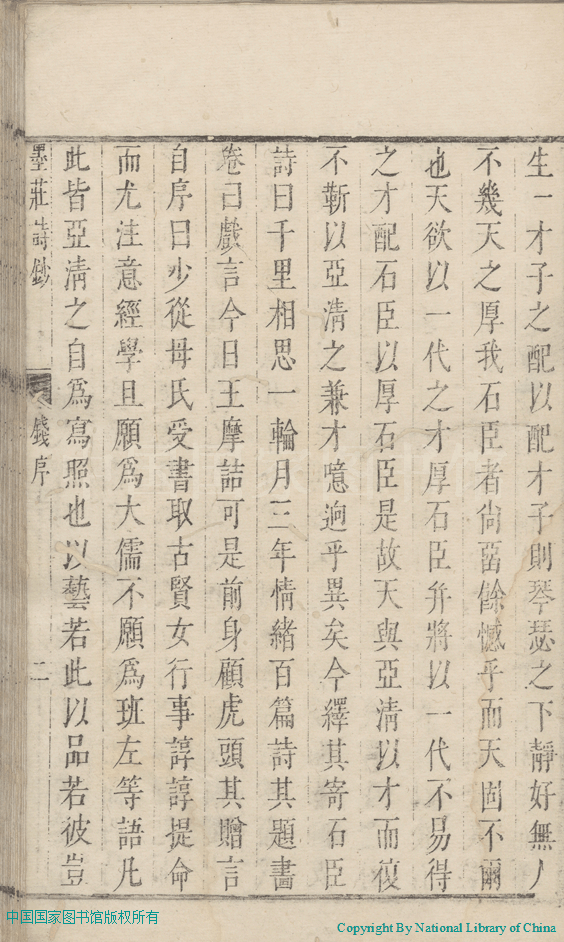 生一才子之配以配才子則琴瑟之下靜好無人
不幾天之厚我石臣者尙啚餘憾乎而天固不爾
也天欲以一代之才厚石臣弁將以一代不易得
之才配石臣以厚石臣是故天與亞淸以才而復
不靳以亞淸之兼才噫逈乎異矣今繹其寄石臣
詩曰千里相思一輪月三年情緒百篇詩其題畵
卷曰戲言今日王摩詰可是前身顧虎頭其贈言
自序曰少從母氏受書取古賢女行事諄諄提命
而尤注意經學且願爲大儒不願爲班左等語凡
此皆亞淸之自爲寫照也以藝若此以品若彼豈
墨莊詩鈔
錢序
二
中国国家图书馆版权所有
Copyright By National Library of China